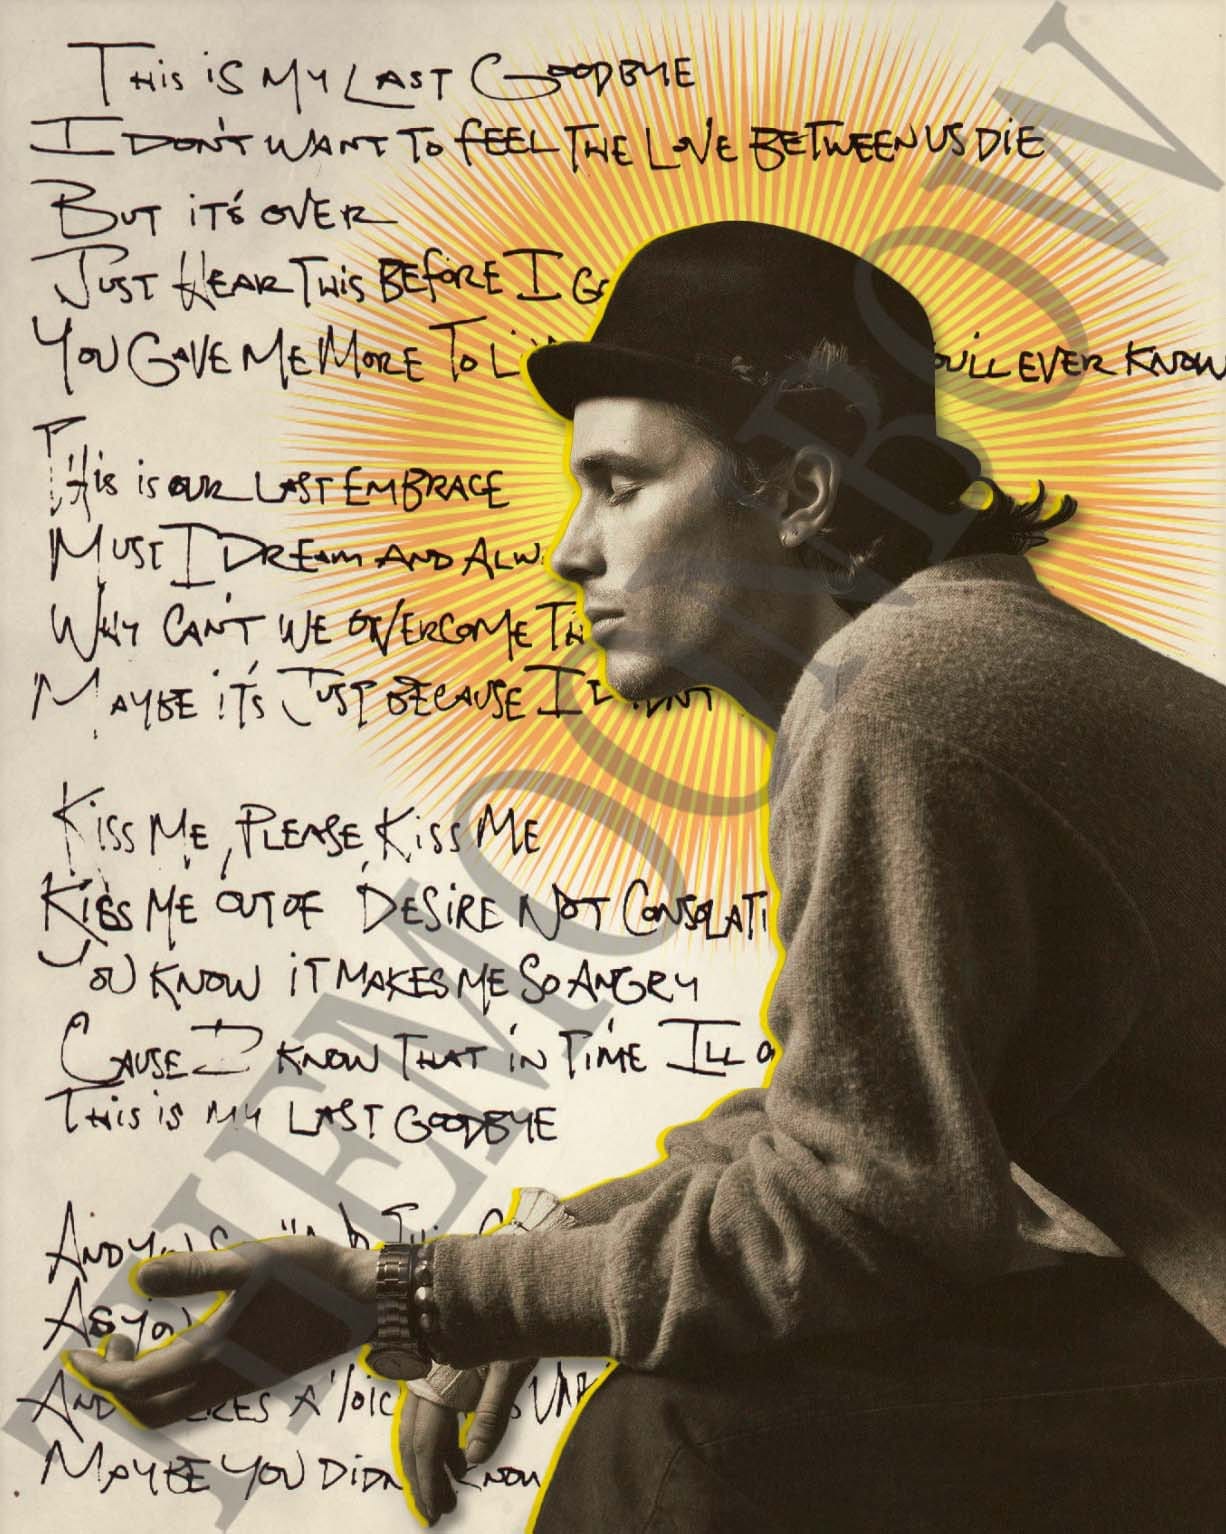 THIS IS MY LAST GOODBYE
I DON'T WANT TO FEEL THE LOVE BETWEEN US DIE
BUT IT'S OVER
JUST HEAR THIS BEFORE I GO
YOU GAVE ME MORE TO LI OU'LL EVER KNOW
THIS IS OUR LAST EMBRACE
MUST I DREAM AND ALW
WHY CAN'T WE OVERCOME TH
MAYBE IT'S JUST BECAUSE I
KISS ME, PLEASE, KISS ME
KISS ME OUT OF DESIRE NOT CONSOLATI
YOU KNOW IT MAKES ME SO ANGRY
CAUSE I KNOW THAT IN TIME ILL
THIS IS MY LAST GOODBYE
AND
AS YOU
AND A VOIC
MAYBE YOU DIDN KNOW
THEMOOMBOV